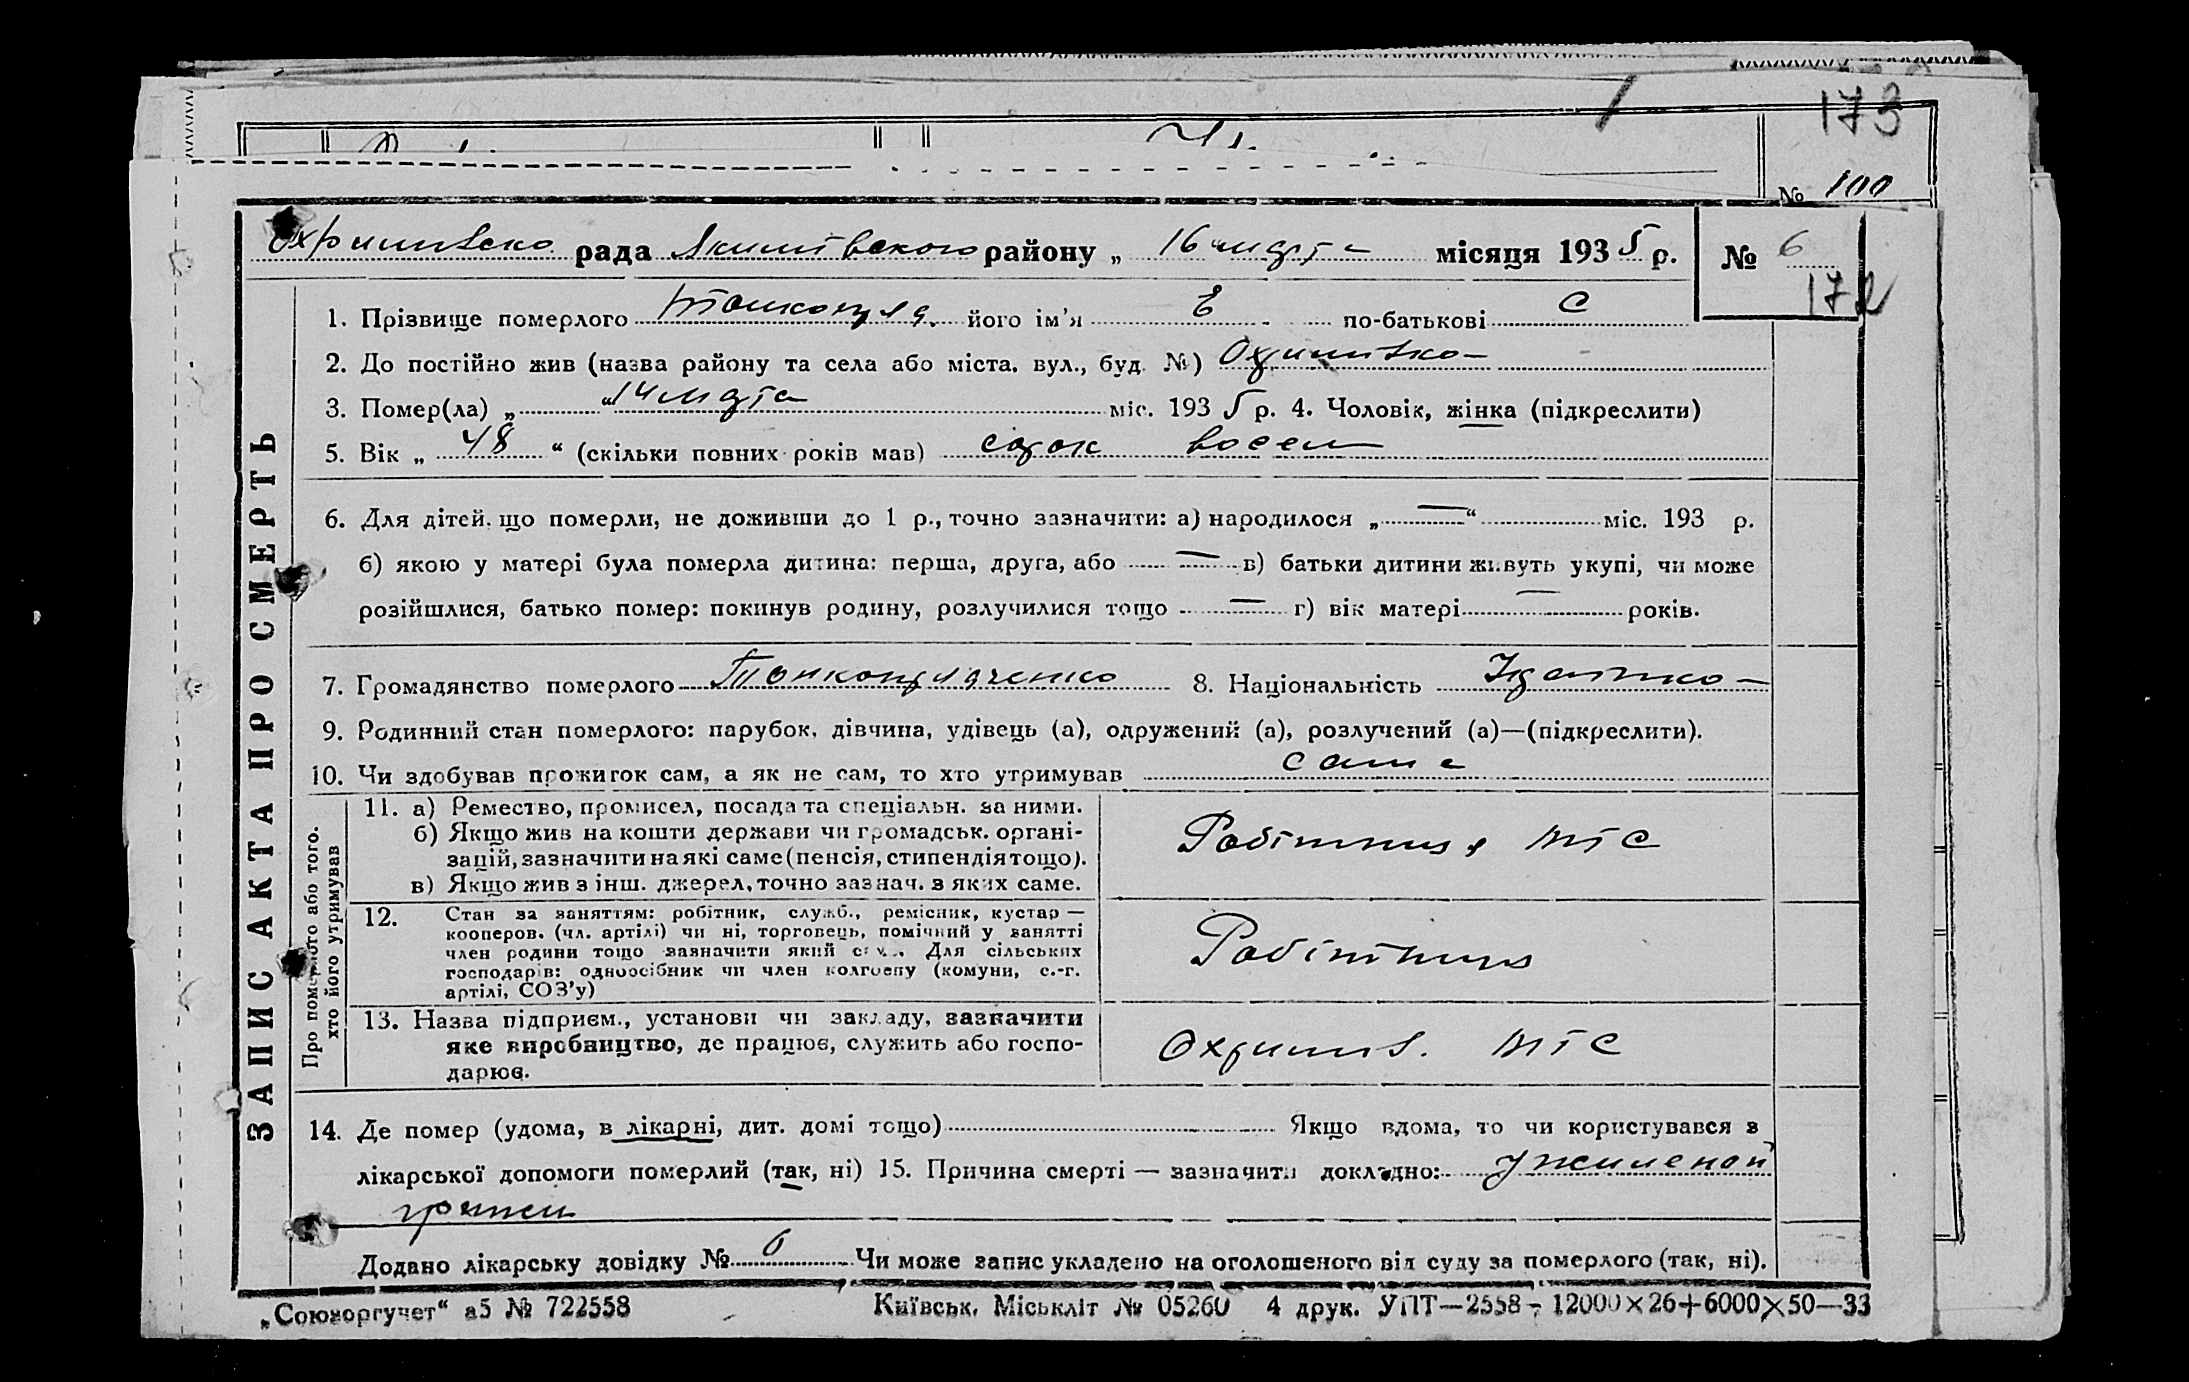 173
№ 100
Охримівсько рада Якимівського району „ 16 марта місяця 1935 р. № 6
172
1. Прізвище померлого його ім’я Е по-батькові С
2. До постійно жив (назва району та села або міста, вул., буд. №) Охримівко
3. Помер(ла) „ “ 14 марта міс. 1935 р. 4. Чоловік, жінка (підкреслити)
5. Вік „ 48 “ (скільки повних років мав) сорок восем
6. Для дітей, що померли, не доживши до 1 р., точно зазначити: а) народилося „ — “ міс. 193 р.
б) якою у матері була померла дитина: перша, друга, або — в) батьки дитини живуть укупі, чи може
розійшлися, батько помер: покинув родину, розлучилися тощо — г) вік матері — років.
7. Громадянство померлого 8. Національність
9. Родинний стан померлого: парубок, дівчина, удівець (а), одружений (а), розлучений (а)—(підкреслити).
10. Чи здобував прожиток сам, а як не сам, то хто утримував сама
ЗАПИС АКТА ПРО СМЕРТЬ
Про померлого або того,
хто його утримував
11. а) Ремество, промисел, посада та спеціальн. за ними.
б) Якщо жив на кошти держави чи громадськ. органі-
зацій, зазначити на які саме (пенсія, стипендія тощо).
в) Якщо жив з інш. джерел, точно зазнач. з яких саме.
Робітниця МТС
12. Стан за заняттям: робітник, служб., ремісник, кустар —
кооперов. (чл. артілі) чи ні, торговець, помічний у занятті
член родини тощо зазначити який саме. Для сільських
господарів: одноосібник чи член колгоспу (комуни, с.-г.
артілі, СОЗ’у)
Робітниця
13. Назва підприєм., установи чи закладу, зазначити
яке виробництво, де працює, служить або госпо-
дарює.
Охримів. МТС
14. Де помер (удома, в лікарні, дит. домі тощо) Якщо вдома, то чи користувався з
лікарської допомоги померлий (так, ні) 15. Причина смерті — зазначити докладно: ужименой
грижи
Додано лікарську довідку № 6 Чи може запис укладено на оголошеного від суду за померлого (так, ні).
„Союзоргучет“ а5 № 722558 Київськ. Міськліт № 05260 4 друк. УПТ—2558 — 12000×26+6000×50—33